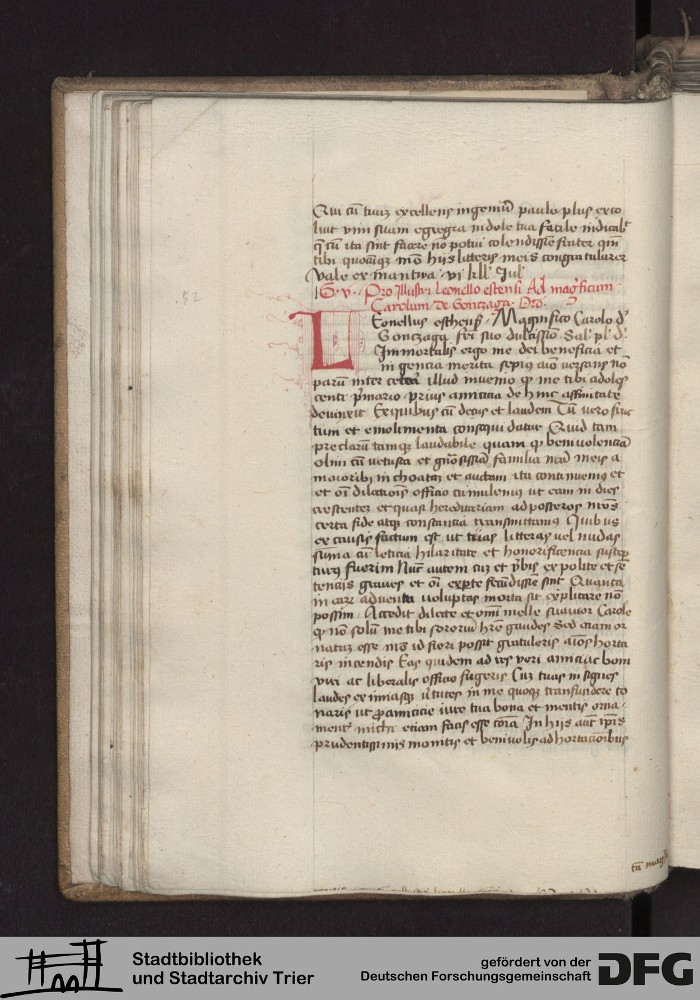 Qui cu͂ tuu͂ excellens ingeniu͂ paulo plus exco
luit vim suam egregia indole tua facile indicabit
q͂ cu͂ ita sint facere no͂ potui colendissi͂e frater quin
tibi quoa͂q͂ m͂o hiis litteris meis congratularer
Vale ex mantua vi kll͂ Jul͂
G. v. Pro Illustri leonello estensi Ad mag͂ficum
Carolum de Gonzaga. Oro.
52
Leonellus esthensꝭ Magnifico Carolo d͂
Gonzaga fr͂i suo dulcissi͂o Sal͂ pl͂ d͂.
Immortalia ergo me dei beneficia et
ingencia merita sepius a͂io versans no͂
paru͂ inter cetera illud inuenio ꝙ me tibi adoles
centi p͂mario prius amicicia de hinc affinitate
deuinxit Ex quibus cu͂ decus et laudem Tu͂ vero fruc
tum et emolimenta consequi datur Quid tam
preclaru͂ tamq͂ laudabile quam ꝙ beniuolencia͂
olim cu͂ vetusta et g͂nosissi͂a familia n͂ra͂ meis a
maioribꝫ inchoata͂ et auctam ita continuemꝰ et
et o͂i dilectionis officio cumulemus ut eam in dies
crescentem et quasi hereditariam ad posteros n͂ros
certa fide atqꝫ constancia transmittamꝰ Quibus
ex causis factum est ut tuas litteras vel nudas
suma cu͂ leticia hilaritate et honorificencia suscep
turus fuerim Nu͂c autem cu͂ et v͂bis expolite et se͂
tenciis graues et o͂i ex p͂te fecu͂dissi͂e sint Quanta
in earum aduentu voluptas m͂orta sit explicare no͂
possim Accedit dilecte et omni melle suauior Carole
ꝙ no͂ solu͂ me tibi sororiu͂ h͂re gaudes Sed etiam or
natus esse m͂o id fieri possit gratuleris a͂ios horta
ris incendis Eas quidem ad res veri amici ac boni
viri ac liberalis officio fugeris Cu͂ tuas insignes
laudes eximiasqꝫ v͂tutes in me quoqꝫ transfundere co
naris ut ꝓ amicicie iure tua bona et mentis orna
menta michi eciam facis esse co͂ia In hiis aut͂ ip͂is
prudentissimis monitis et beniuolis adhortacionibus
Stadtbibliothek
und Stadtarchiv Trier
gefördert von der
Deutschen Forschungsgemeinschaft
DFG